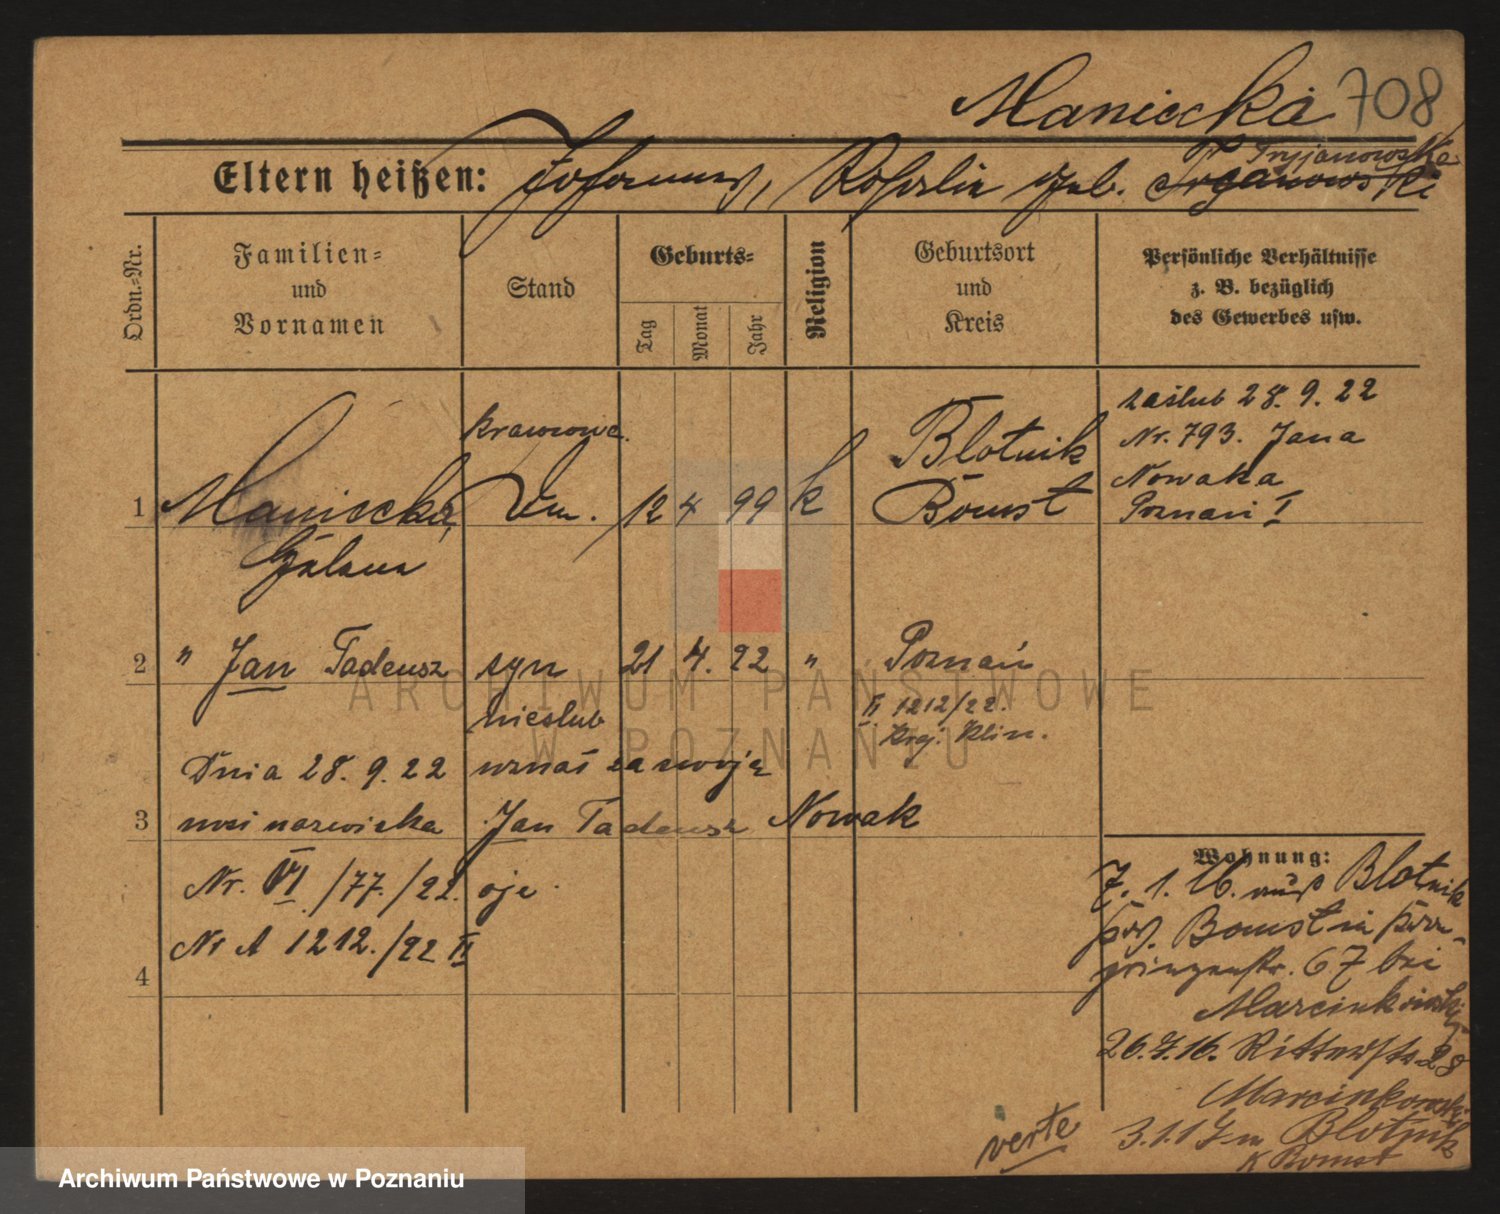 Maniecka 708
Eltern heißen: Johannes, Rosalie geb. Trganowski Tryjanowska
Ordn.-Nr.
Familien-
und
Vornamen
Stand
Geburts-
Tag
Monat
Jahr
Religion
Geburtsort
und
Kreis
Persönliche Verhältnisse
z. B. bezüglich
des Gewerbes usw.
krawcowa
1 Maniecka, 12 4 99 k
Helena
Blotnik
Bomst
zaślub 28. 9. 22
Nr. 793. Jana
Nowaka
Poznań I
2 " Jan Tadeusz syn 21 4. 22 " Poznań
nieślub
II 1212/22.
Klin.
Dnia 28. 9. 22 uznał za swoje
3 nosi nazwiska Jan Tadeusz Nowak
Nr. VI/77./22. oje.
Nr A 1212./22 II
4
Wohnung:
7. 1. 16. aus Blotnik
Krs. Bomst
67 bei
Marcinkowski
26.7.16. Ritterstr. 28
Marcinkowski
3.1.17 n Blotnik
K Bomst
verte
ARCHIWUM PAŃSTWOWE
W POZNANIU
Archiwum Państwowe w Poznaniu